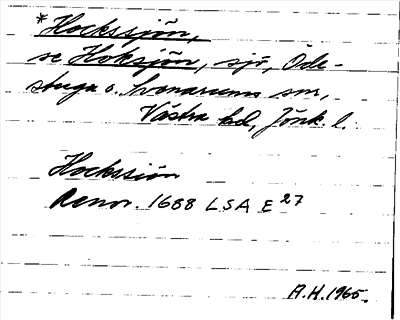 *Hockssjön,
se Hoksjön, sjö, Öde-
stuga o. Svenarums snr,
Västra hd, Jönk. l.
Hockssiön
Renov. 1688 LSA E 27
A.H. 1965.